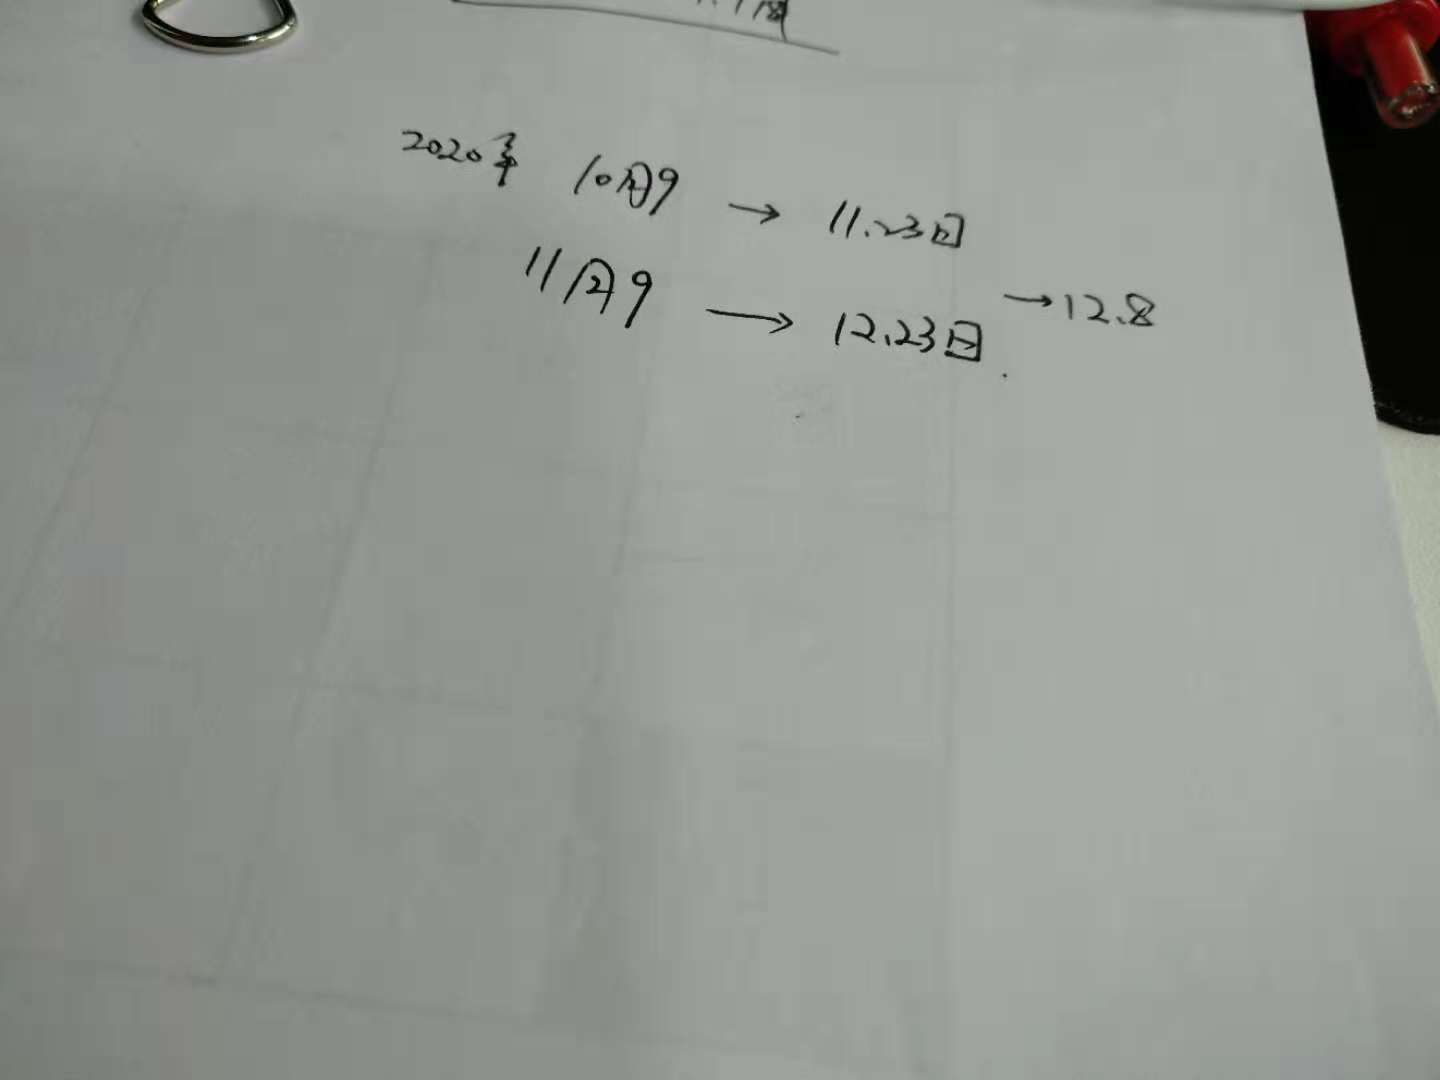 2020年 10月9 → 11.23日
11月9 → 12.23日 → 12.8